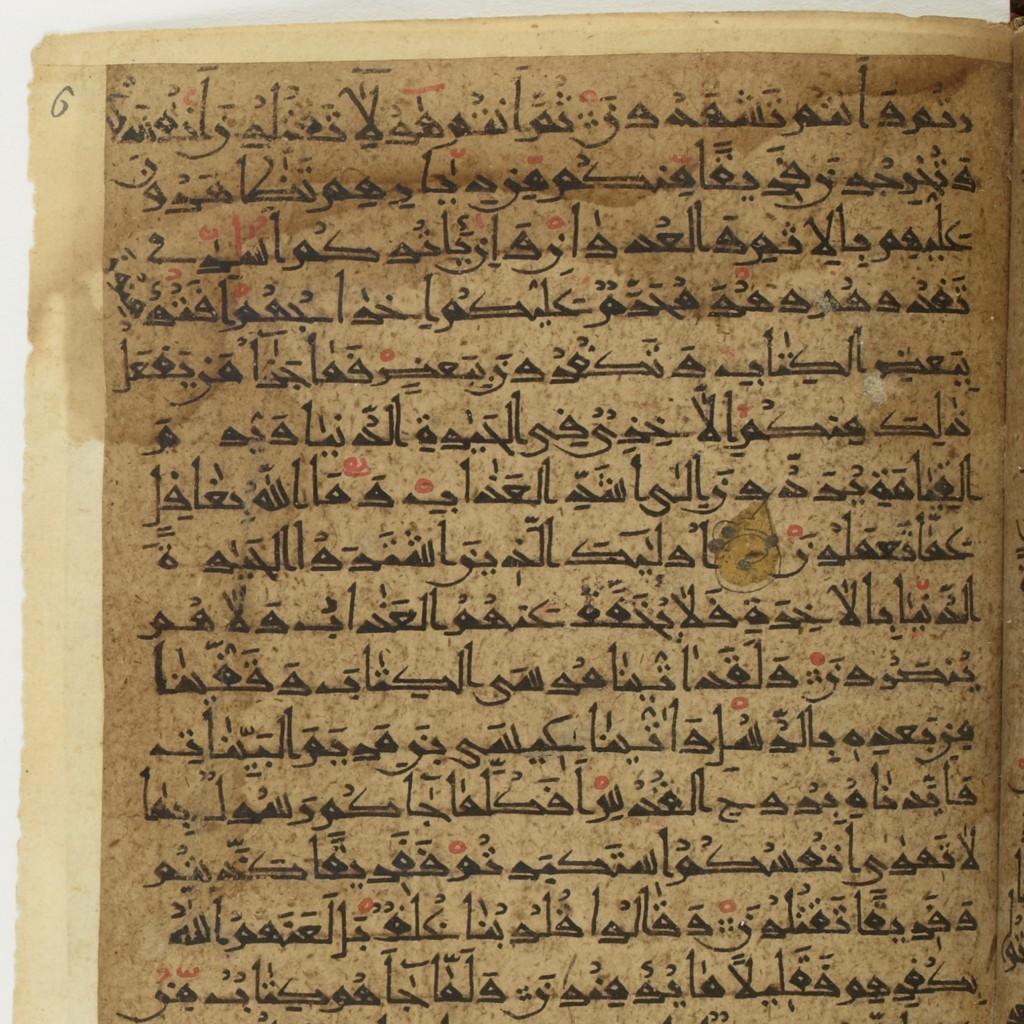 6
رتم وأنتم تشهدون ثم أنتم هؤلاء تقتلون أنفسكم
وتخرجون فريقا منكم من ديارهم تظاهرون
عليهم بالإثم والعدوان وإن يأتوكم أسرى
تفدوهم وهو محرم عليكم إخراجهم أفتؤمنون
ببعض الكتاب وتكفرون ببعض فما جزاء من يفعل
ذلك منكم إلا خزي في الحيوة الدنيا ويوم
القيامة يردون إلى أشد العذاب وما الله بغافل
عما تعملون أولئك الذين اشتروا الحيوة
الدنيا بالآخرة فلا يخفف عنهم العذاب ولا هم
ينصرون ولقد آتينا موسى الكتاب وقفينا
من بعده بالرسل وآتينا عيسى بن مريم البينات
وأيدناه بروح القدس أفكلما جاءكم رسول بما
لا تهوى أنفسكم استكبرتم ففريقا كذبتم
وفريقا تقتلون وقالوا قلوبنا غلف بل لعنهم الله
بكفرهم فقليلا ما يؤمنون ولما جاءهم كتاب من